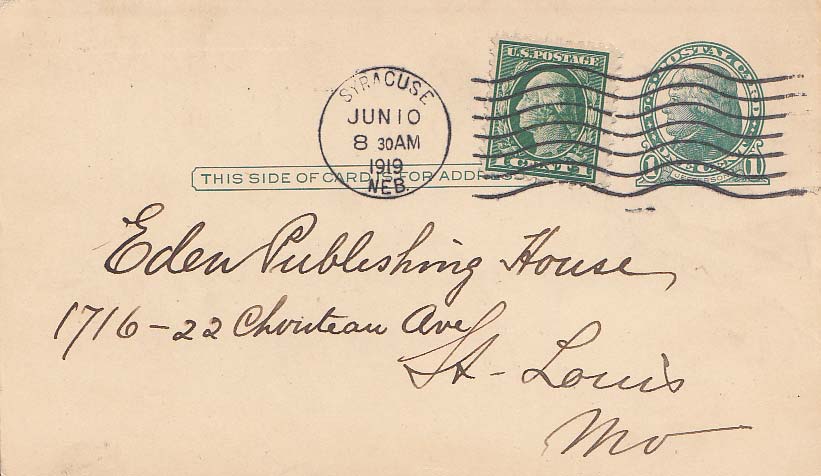 SYRACUSE
JUN 10
8 30 AM
1919
NEB.
U.S. POSTAGE
1 CENT 1
POSTAL CARD
1 1
JEFFERSON
THIS SIDE OF CARD IS FOR ADDRESS
Eden Publishing House
1716-22 Chouteau Ave
St - Louis
Mo